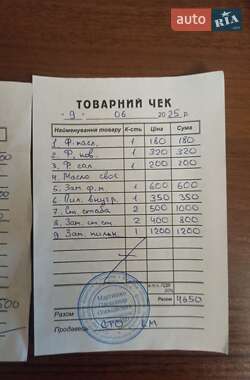 AUTO RIA
ТОВАРНИЙ ЧЕК
" 9 " 06 2025 р.
Найменування товару К-сть Ціна Сума
1. Ф. масл. 1 180 180
2. Ф. пов. 1 320 320
3. Ф. сал. 1 200 200
4. Масло своє
5. Зам. ф. м. 1 600 600
6. Пил. внутр. 1 350 350
7. Ст. стаба 2 500 1000
8. Зам. ст. ст. 2 400 800
9 Зам. 1 1200 1200
Разом 4650
Разом
Продавець СТО
500